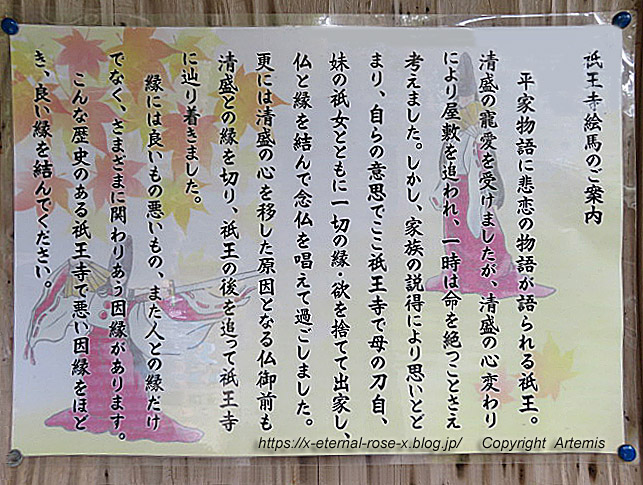 祇王寺絵馬のご案内
平家物語に悲恋の物語が語られる祇王。
清盛の寵愛を受けましたが、清盛の心変わり
により屋敷を追われ、一時は命を絶つことさえ
考えました。しかし、家族の説得により思いとど
まり、自らの意思でここ祇王寺で母の刀自、
妹の祇女とともに一切の縁・欲を捨てて出家し
仏と縁を結んで念仏を唱えて過ごしました。
更には清盛の心を移した原因となる仏御前も
清盛との縁を切り、祇王の後を追って祇王寺
に辿り着きました。
縁には良いもの悪いもの、また人との縁だけ
でなく、さまざまに関わりあう因縁があります。
こんな歴史のある祇王寺で悪い因縁をほど
き、良い縁を結んでください。
https://x-eternal-rose-x.blog.jp/ Copyright Artemis